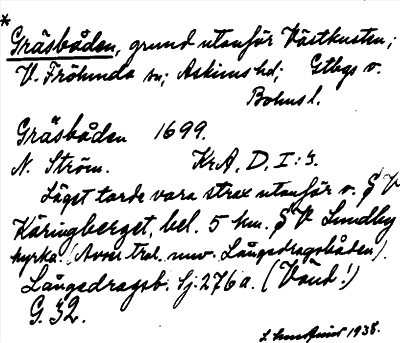 * Gräsbåden, grund utanför Västkusten;
V. Frölunda sn; Askims hd; Gtbgs o.
Bohusl.
Gräsbåden 1699.
N. Ström. KrA. D. I: 3.
Läget torde vara strax utanför v.
Käringberget, bel. 5 km. SV Lundby
kyrka. (Avser trol. nuv. Långedragsbåden).
Långedragsb. Sj. 276 a. (Vänd!)
G. 32.
1938.